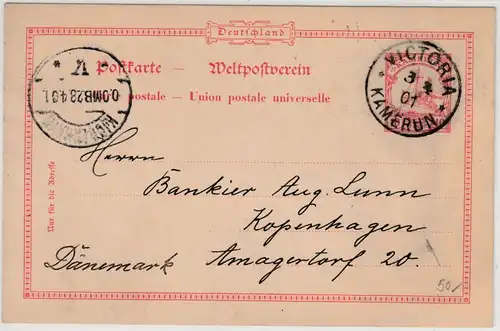 Deutschland
Postkarte — Weltpostverein
postale — Union postale universelle
VICTORIA
3
01
* KAMERUN *
K
O.OMB 28 4 01
Nur für die Adresse
Herrn
Bankier Aug. Lunn
Kopenhagen
Dänemark Amagertorf 20.
50/